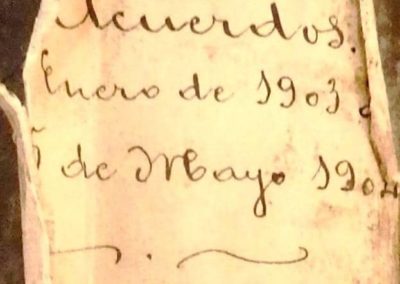 Acuerdos.
Enero de 1903 a
5 de Mayo 1904